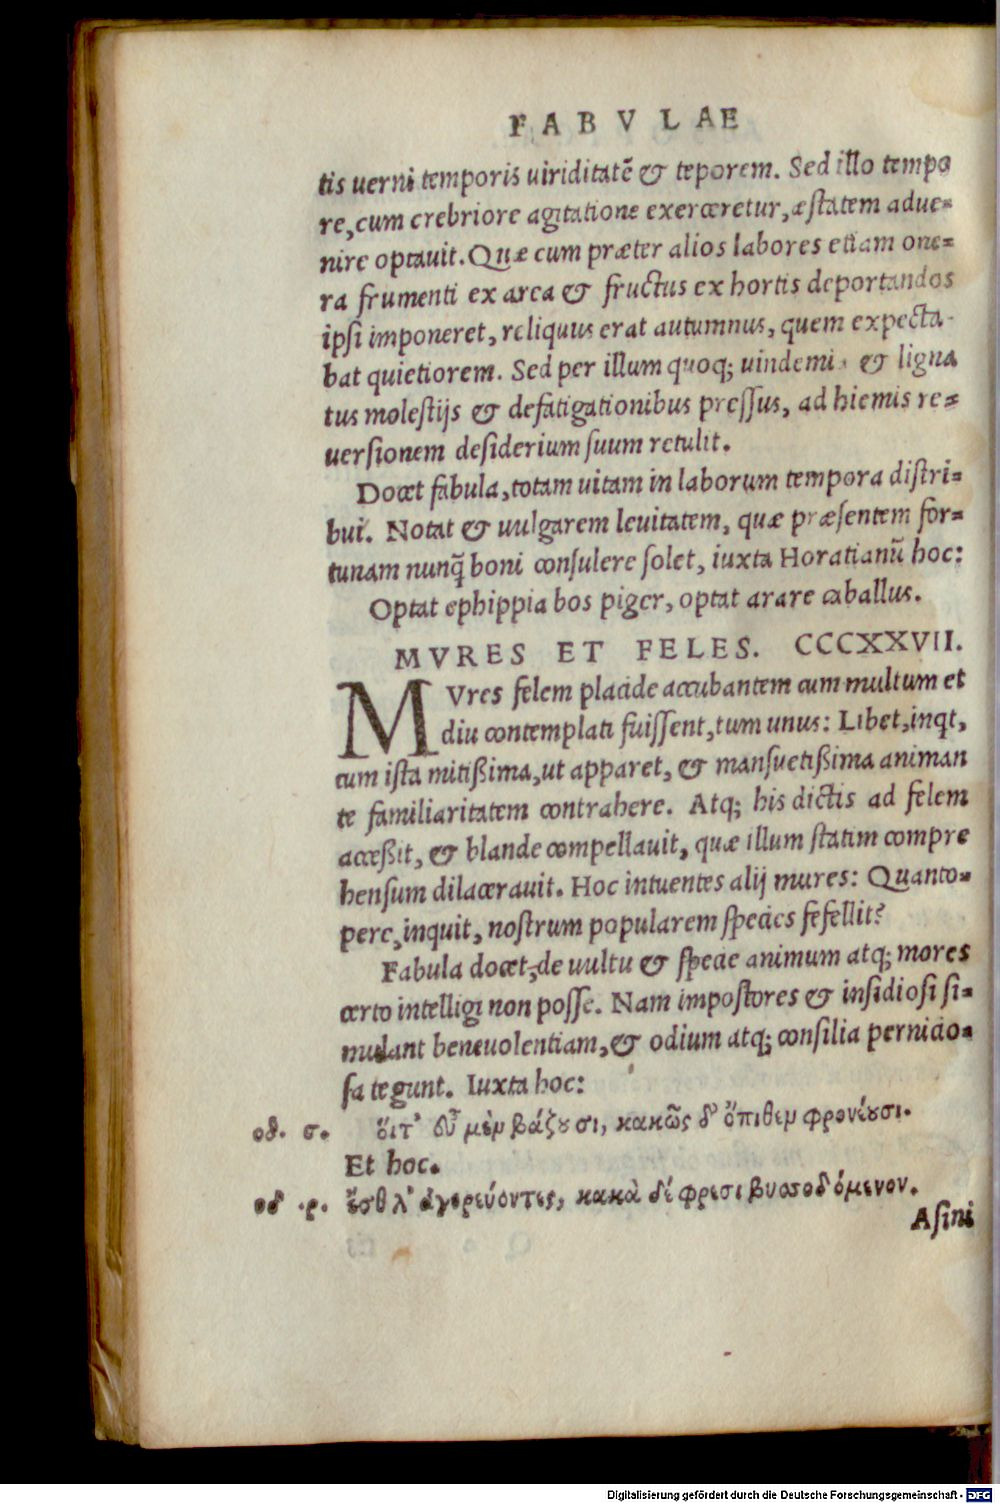 FABVLAE
tis uerni temporis uiriditatẽ & teporem. Sed illo tempo
re, cum crebriore agitatione exerceretur, æstatem adue=
nire optauit. Quæ cum præter alios labores etiam one=
ra frumenti ex area & fructus ex hortis deportandos
ipsi imponeret, reliquus erat autumnus, quem expecta-
bat quietiorem. Sed per illum quoq; uindemi & ligna
tus molestijs & defatigationibus pressus, ad hiemis re=
uersionem desiderium suum retulit.
Docet fabula, totam uitam in laborum tempora distri=
bui. Notat & uulgarem leuitatem, quæ præsentem for=
tunam nunq̃ boni consulere solet, iuxta Horatianũ hoc:
Optat ephippia bos piger, optat arare caballus.
MVRES ET FELES. CCCXXVII.
MVres felem placide accubantem cum multum et
diu contemplati fuissent, tum unus: Libet, inqt,
cum ista mitißima, ut apparet, & mansuetißima animan
te familiaritatem contrahere. Atq; his dictis ad felem
acceßit, & blande compellauit, quæ illum statim compre
hensum dilacerauit. Hoc intuentes alij mures: Quanto=
pere, inquit, nostrum popularem species fefellit?
Fabula docet, de uultu & specie animum atq; mores
certo intelligi non posse. Nam impostores & insidiosi si=
mulant beneuolentiam, & odium atq; consilia pernicio=
sa tegunt. Iuxta hoc:
οδ. σ. ὅιτ' ἐῢ μὲν βάζουσι, κακῶς δ' ὄπιθεν φρονέουσι.
Et hoc.
οδ .ρ. ἔσθλ' ἀγορεύοντες, κακὰ δέ φρεσι βυσσοδόμενον.
Asini
Digitalisierung gefördert durch die Deutsche Forschungsgemeinschaft - DFG